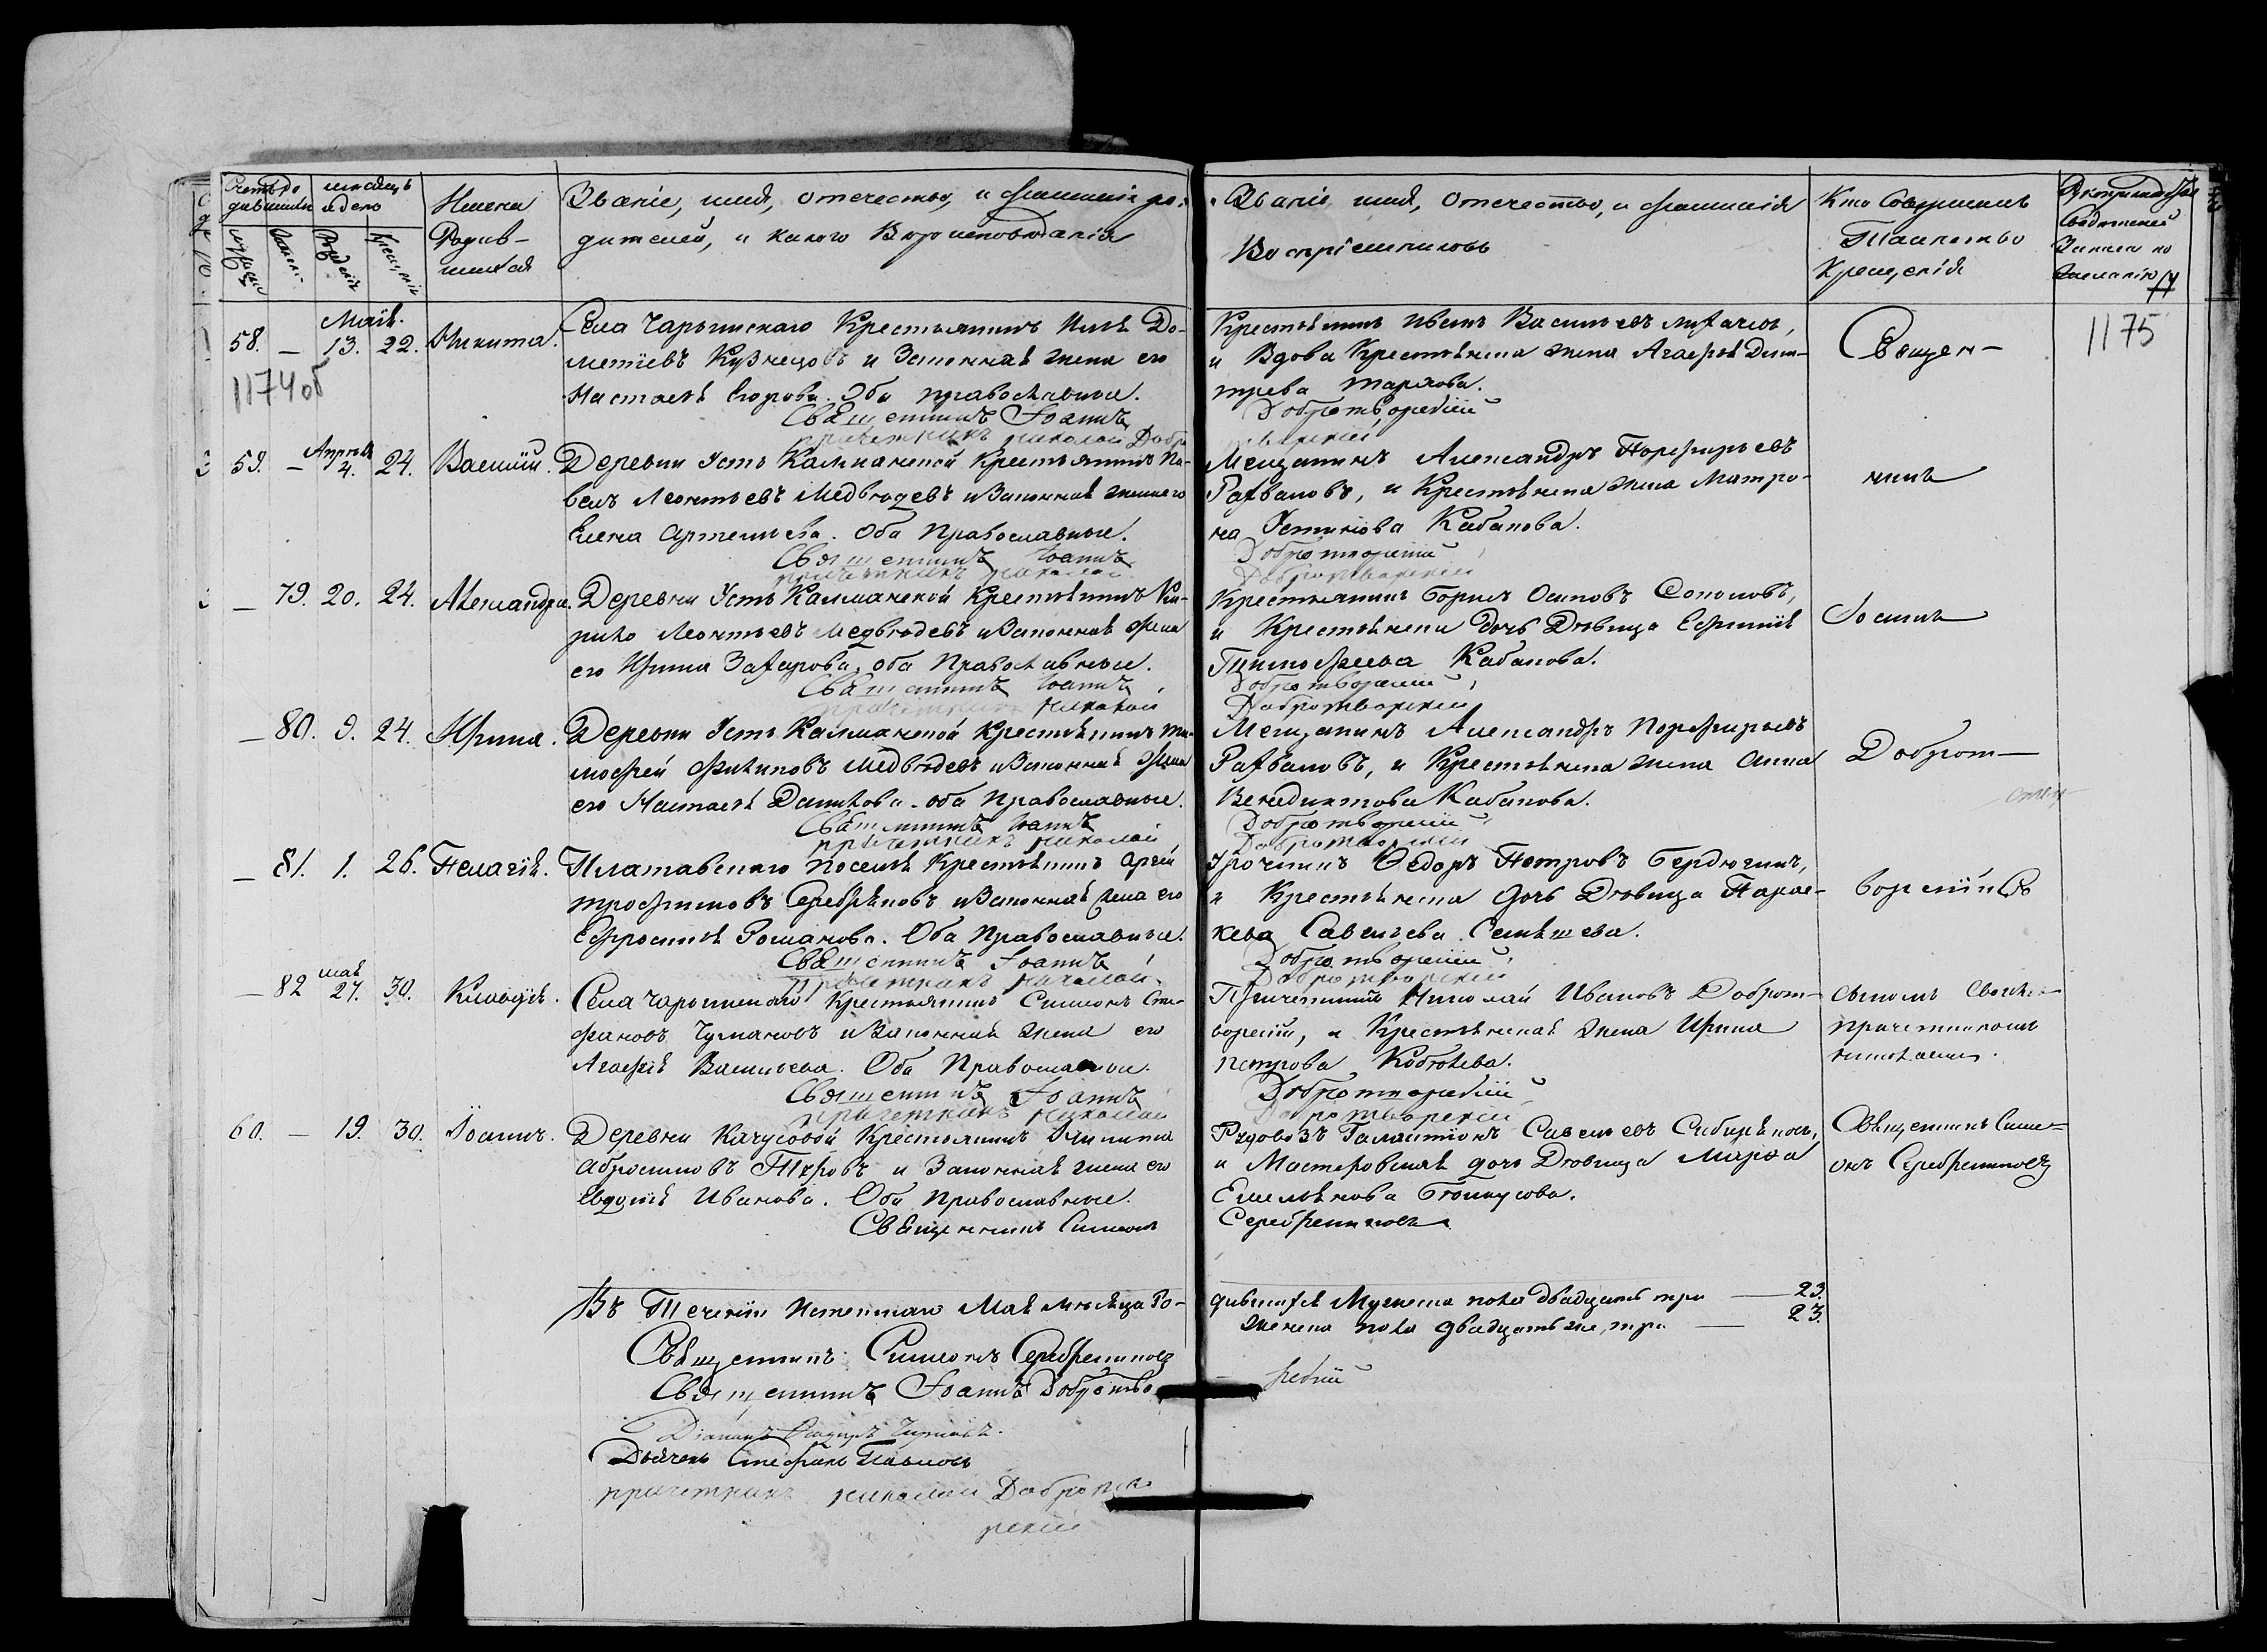 Счетъ ро
дившихся
мѣсяцъ
и день
Имена
Родив-
шихся
Званіе, имя, отечество, и фамилія ро-
дителей, и какого Вѣроисповѣданія
Званіе, имя, отечество, и фамилія
Воспріемниковъ
Кто Совершалъ
Таинство
Крещенія
Маія.
58. — 13. 22. Никита.
1174об
Села Чарышскаго Крестьянинъ Илья До-
метіевъ Кузнецовъ и Законная жена его
Настасья Егорова. Оба православные.
Священникъ Іоаннъ
причетникъ николай Добро
Крестьянинъ Иванъ Васильевъ
и Вдова Крестьянска жена Агафья Дми-
тріева
Добротворскій
творскій
Священ-
1175
59. — Апрѣля 4. 24. Василій.
Деревни Усть Калманской Крестьянинъ Па-
велъ Леонтьевъ Медвѣдевъ и Законная жена его
Елена Артемьева. Оба Православные.
Священникъ Іоаннъ
причетникъ николай
Мещанинъ Александръ Порфирьевъ
и Крестьянска жена Матро-
на Устинова Кабанова.
Добротворскій
Добротворскій
никъ
— 79. 20. 24. Александра.
Деревни Усть Калманской Крестьянинъ Ки-
рило Леонтьевъ Медвѣдевъ и Законная жена
его Ирина Захарова, оба Православные.
Священникъ Іоаннъ
причетникъ николай
Крестьянинъ Борисъ Осиповъ
и Крестьянска дочь Дѣвица Ефимія
Тимофеева Кабанова.
Добротворскій
Добротворскій
Іоаннъ
— 80. 9. 24. Ирина.
Деревни Усть Калманской Крестьянинъ Ти-
мофей Филиповъ Медвѣдевъ и Законная жена
его Настасья Данилова. оба Православные.
Священникъ Іоаннъ
причетникъ николай
Мещанинъ Александръ Порфирьевъ
и Крестьянска жена Анна
Венедиктова Кабанова.
Добротворскій
Добротворскій
Доброт-
— 81. 1. 26. Пелагія.
Крестьянинъ
Трофимовъ Серебряковъ и Законная жена его
Ефросинья Романова. Оба Православные.
Священникъ Іоаннъ
Причетникъ николай
Урочникъ Ѳедоръ Петровъ Бердюгинъ,
и Крестьянска дочь Дѣвица Парас-
кева Савельева
Добротворскій
Добротворскій
ворскій съ
— 82 мая 27. 30. Клавдія.
Села Чарышскаго Крестьянинъ Симонъ Сте-
фановъ Чумаковъ и Законная жена его
Агафія Васильева. Оба Православные.
Священникъ Іоаннъ
причетникъ николай
Причетникъ Николай Ивановъ Доброт-
ворскій, и Крестьянская жена Ирина
Петрова
Добротворскій
Добротворскій
сыномъ своимъ
причетникомъ
николаемъ.
60. — 19. 30. Іоаннъ.
Деревни Качусовой Крестьянинъ Никита
Абросимовъ и Законная жена его
Евдокія Иванова. Оба Православные.
Священникъ Симеонъ
Рудовозъ Галактіонъ Савельевъ Сибиряковъ,
и Мастеровская дочь Дѣвица Марфа
Емельянова
Серебренниковъ
Священникъ Симе-
онъ Серебренниковъ
Въ Теченіи Истекшаго Мая мѣсяца Ро-
дившихся Мужеска пола двадцать три — 23.
Женска пола двадцать же, три — 23.
Священникъ Симеонъ Серебренниковъ
Священникъ Іоаннъ Добротво-
рскій
Дьячекъ Стефанъ Павловъ
причетникъ николай Добротво
рскій